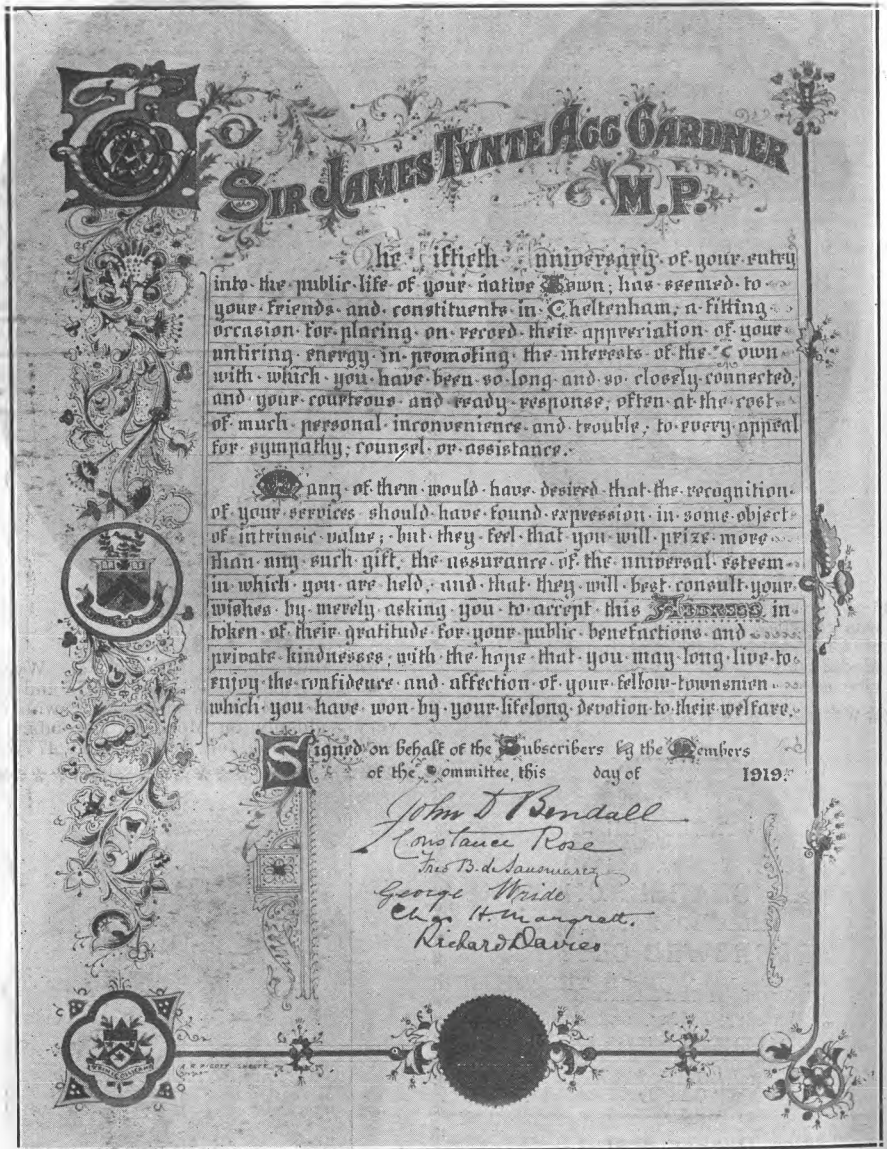 To
Sir James Tynte Agg Gardner
M.P.
The Fiftieth Anniversary of your entry
into the public life of your native Town; has seemed to
your friends and constituents in Cheltenham, a fitting
occasion for placing on record their appreciation of your
untiring energy in promoting the interests of the Town
with which you have been so long and so closely connected,
and your courteous and ready response, often at the cost
of much personal inconvenience and trouble, to every appeal
for sympathy, counsel or assistance.
Many of them would have desired that the recognition
of your services should have found expression in some object
of intrinsic value; but they feel that you will prize more
than any such gift, the assurance of the universal esteem
in which you are held, and that they will best consult your
wishes by merely asking you to accept this Address in
token of their gratitude for your public benefactions and
private kindnesses; with the hope that you may long live to
enjoy the confidence and affection of your fellow-townsmen
which you have won by your lifelong devotion to their welfare.
Signed on behalf of the Subscribers by the Members
of the Committee, this day of 1919.
John D Bendall
Constance Rose
Fred B. de Sausmarez
George Wride
Chas H. Margrett.
Richard Davies